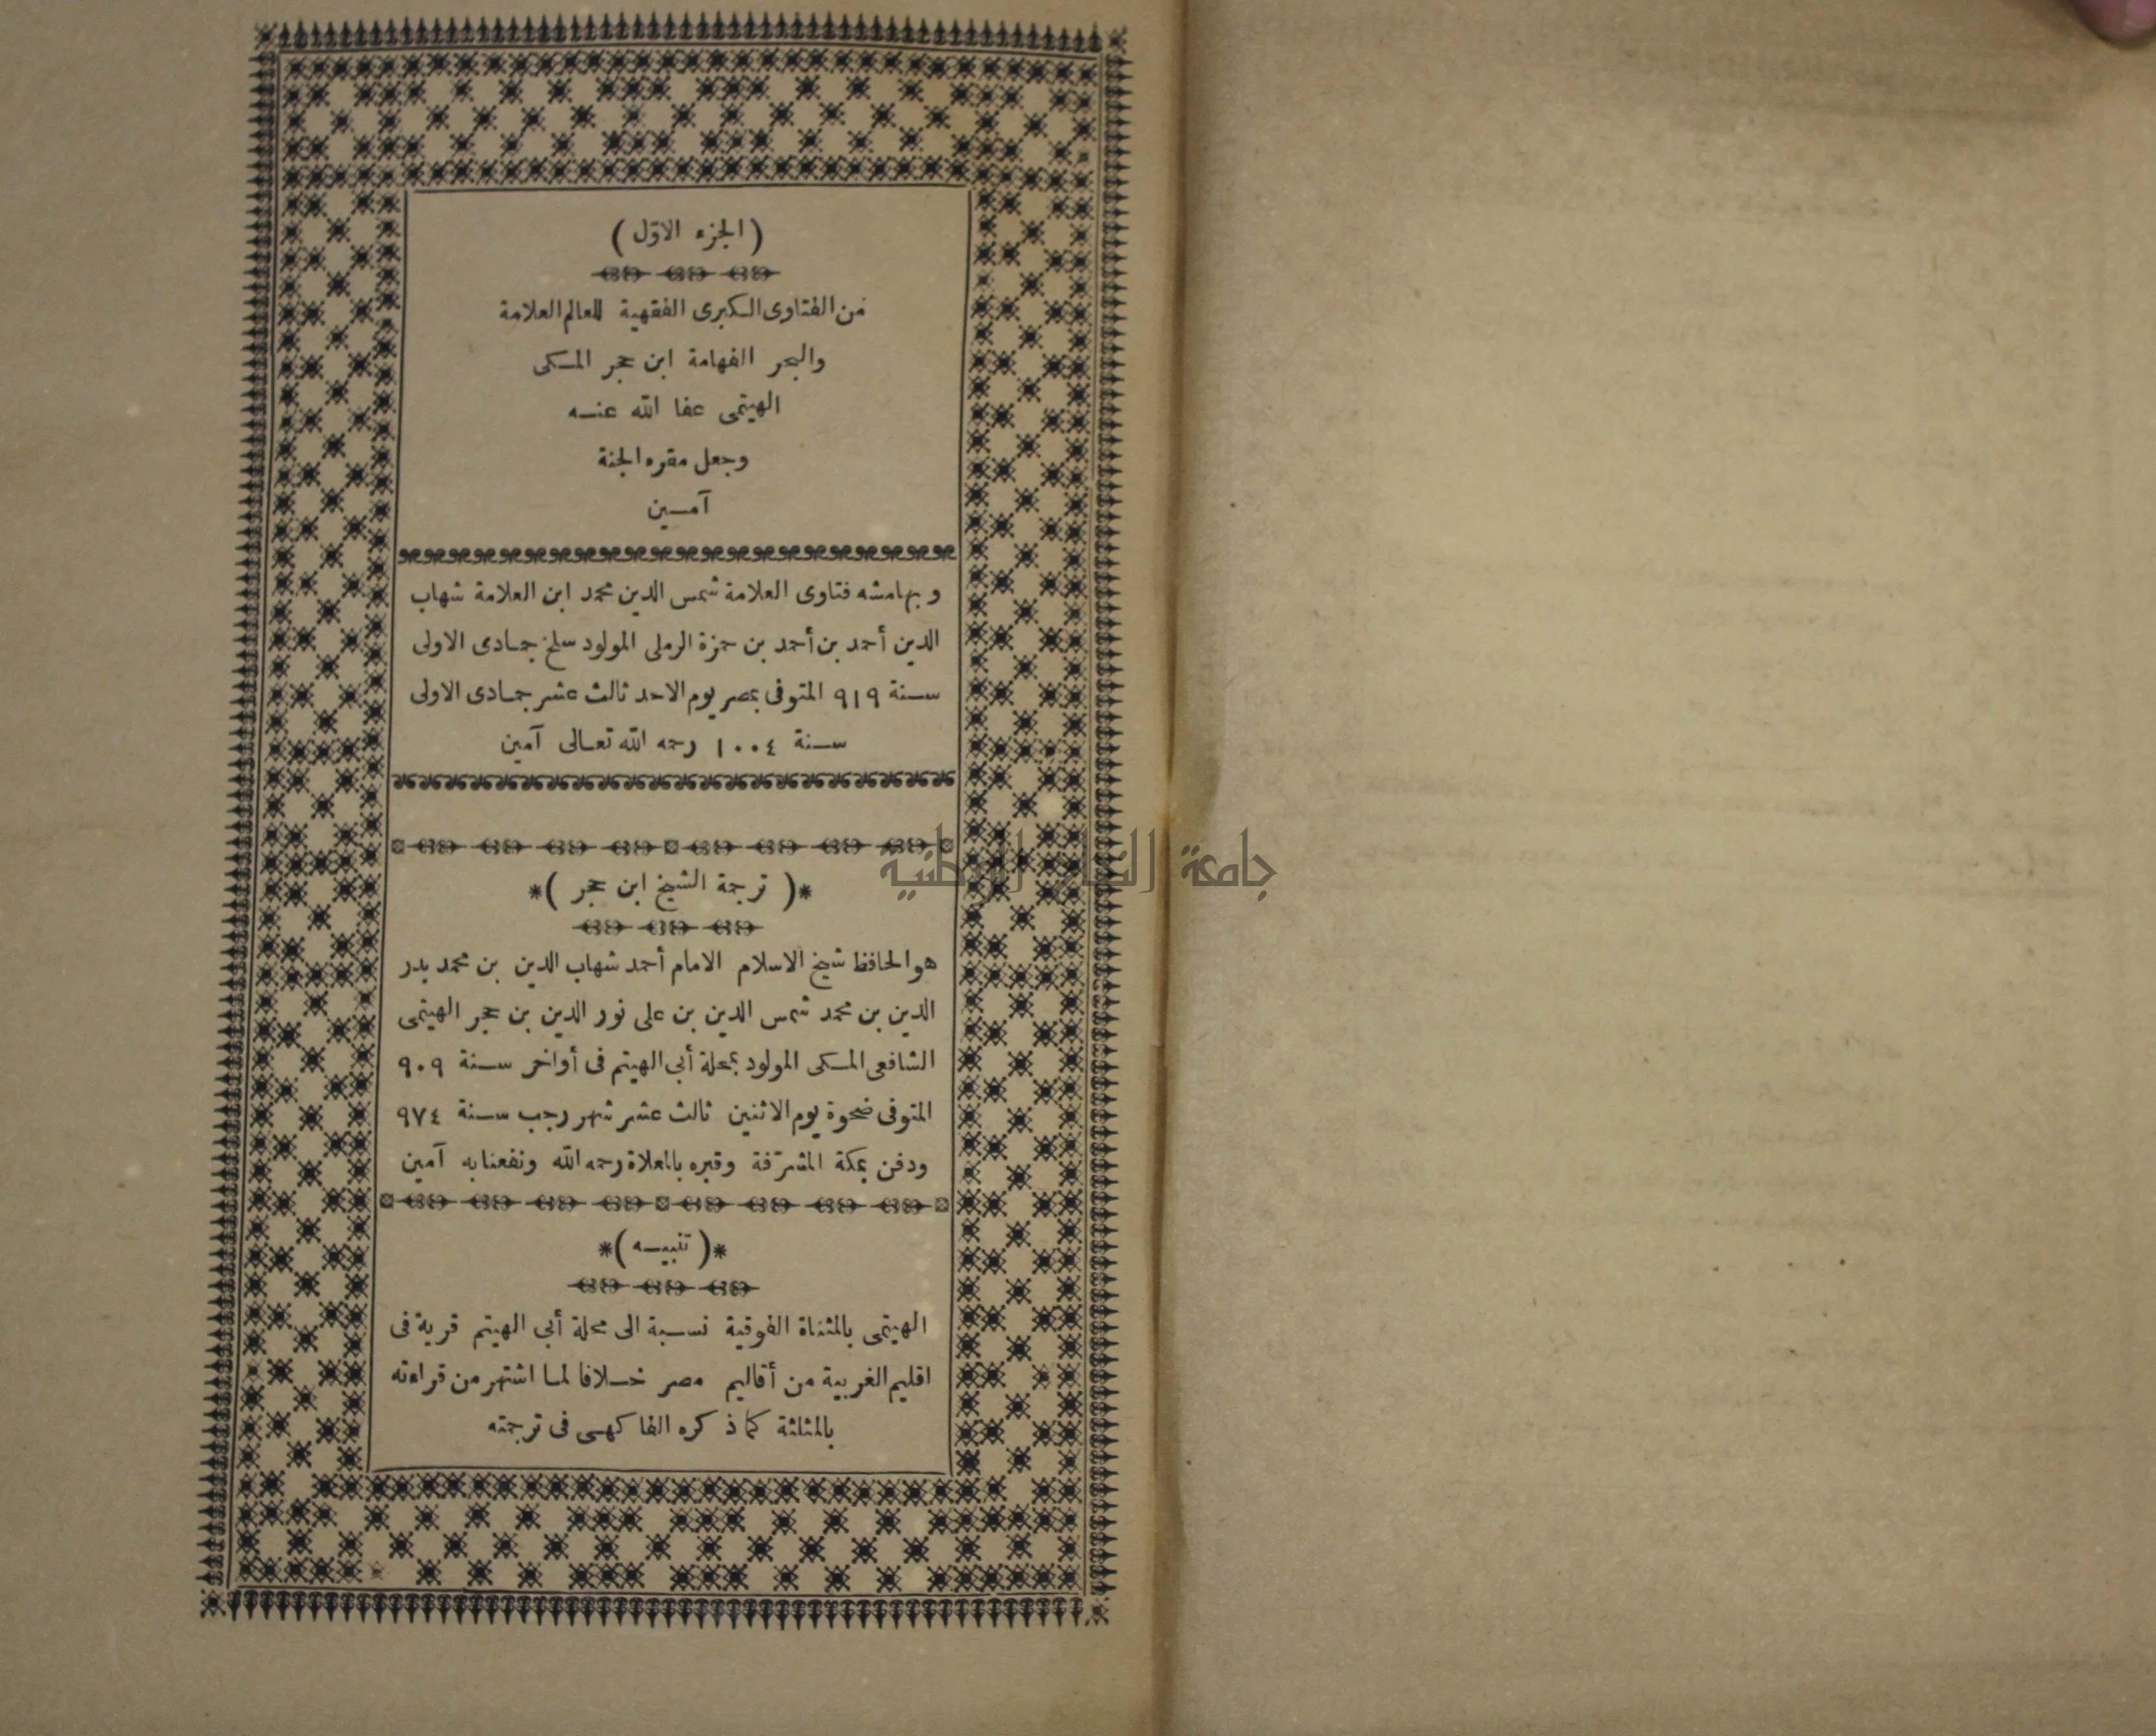 (الجزء الاوّل)
من الفتاوى الكبرى الفقهية للعالم العلامة
والبحر الفهامة ابن حجر المكى
الهيتمى عفا الله عنه
وجعل مقره الجنة
آمين
وبهامشه فتاوى العلامة شمس الدين محمد ابن العلامة شهاب
الدين أحمد بن أحمد بن حمزة الرملى المولود سلخ جمادى الاولى
سنة ٩١٩ المتوفى بمصر يوم الاحد ثالث عشر جمادى الاولى
سنة ١٠٠٤ رحمه الله تعالى آمين
*(ترجمة الشيخ ابن حجر)*
هو الحافظ شيخ الاسلام الامام أحمد شهاب الدين بن محمد بدر
الدين بن محمد شمس الدين بن على نور الدين بن حجر الهيتمى
الشافعى المكى المولود بمحلة أبى الهيتم فى أواخر سنة ٩٠٩
المتوفى ضحوة يوم الاثنين ثالث عشر شهر رجب سنة ٩٧٤
ودفن بمكة المشرّفة وقبره بالمعلاة رحمه الله ونفعنا به آمين
*(تنبيه)*
الهيتمى بالمثناة الفوقية نسبة الى محلة أبى الهيتم قرية فى
اقليم الغربية من أقاليم مصر خلافا لما اشتهر من قراءته
بالمثلثة كما ذكره الفاكهى فى ترجمته
جامعة النجاح الوطنية